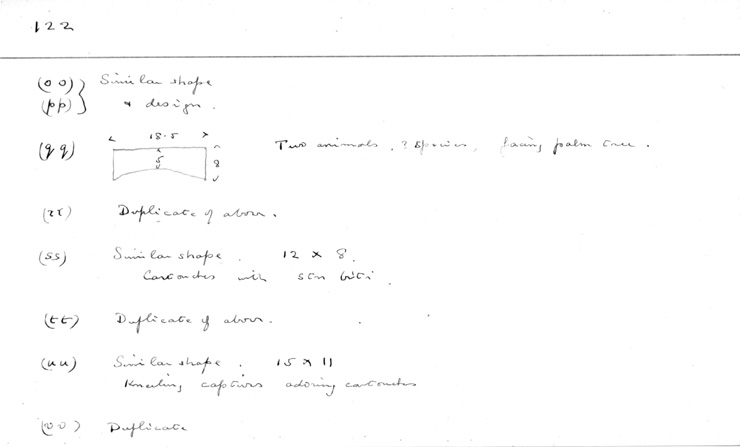 122
(oo) } Similar shape
(pp) } & design.
(qq) 18.5 5 8 Two animals, ? species, facing palm tree.
(rr) Duplicate of above.
(ss) Similar shape. 12 x 8.
Cartouches with stn biti.
(tt) Duplicate of above.
(uu) Similar shape. 15 x 11
Kneeling captives adoring cartouches
(vv) Duplicate